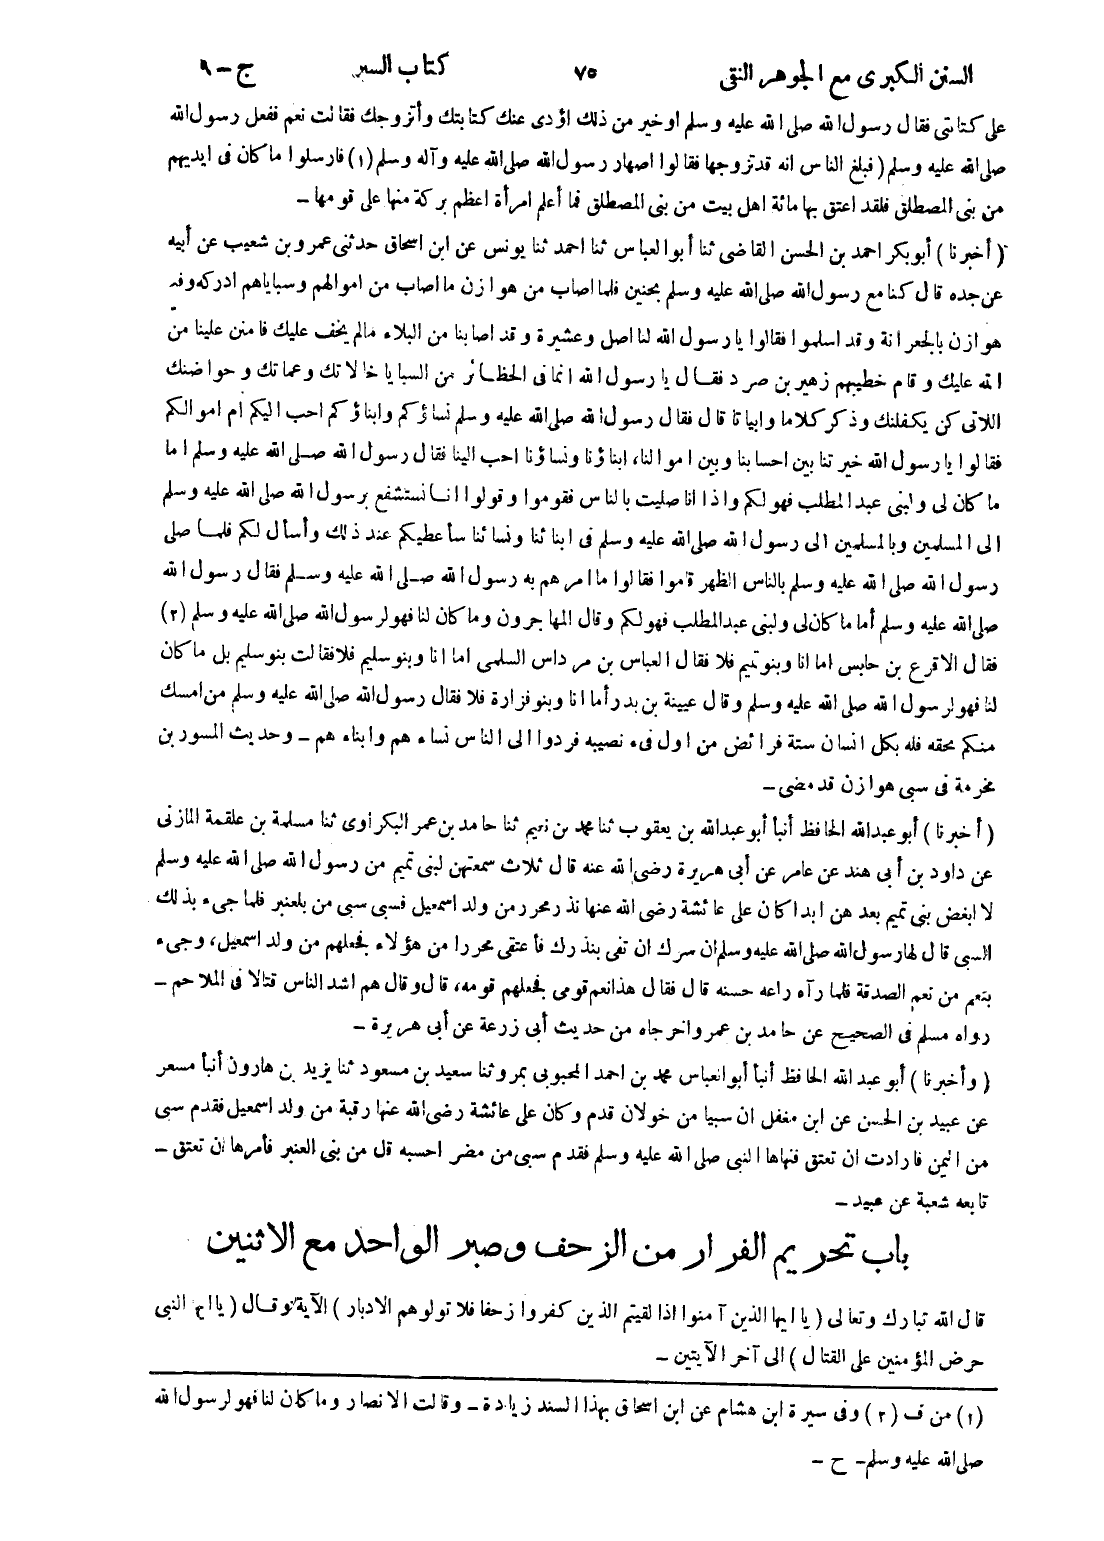 السنن الكبرى مع الجوهر النقى ٧٥ كتاب السير ج - ٩
على كتابتى فقال رسول الله صلى الله عليه وسلم او خير من ذلك اؤدى عنك كتابتك وأتزوجك فقالت نعم ففعل رسول الله
صلى الله عليه وسلم ( فبلغ الناس انه قد تزوجها فقالوا اصهار رسول الله صلى الله عليه وآله وسلم (١) فارسلوا ما كان فى ايديهم
من بنى المصطلق فلقد اعتق بها مائة اهل بيت من بنى المصطلق فما أعلم امرأة اعظم بركة منها على قومها -
( أخبرنا ) أبو بكر احمد بن الحسن القاضى ثنا أبو العباس ثنا احمد ثنا يونس عن ابن اسحاق حدثنى عمرو بن شعيب عن أبيه
عن جده قال كنا مع رسول الله صلى الله عليه وسلم بحنين فلما اصاب من هوازن ما اصاب من اموالهم وسباياهم ادركه وفد
هوازن بالجعرانة وقد اسلموا فقالوا يا رسول الله لنا اصل وعشيرة وقد اصابنا من البلاء ما لم يخف عليك فامنن علينا من
الله عليك وقام خطيبهم زهير بن صرد فقال يا رسول الله انما فى الحظائر من السبايا خالاتك وعماتك وحواضنك
اللاتى كن يكفلنك وذكر كلاما وابياتا قال فقال رسول الله صلى الله عليه وسلم نساؤكم وابناؤكم احب اليكم ام اموالكم
فقالوا يا رسول الله خيرتنا بين احسابنا وبين اموالنا، ابناؤنا ونساؤنا احب الينا فقال رسول الله صلى الله عليه وسلم اما
ما كان لى ولبنى عبد المطلب فهو لكم واذا انا صليت بالناس فقوموا وقولوا انا نستشفع برسول الله صلى الله عليه وسلم
الى المسلمين وبالمسلمين الى رسول الله صلى الله عليه وسلم فى ابنائنا ونسائنا سأعطيكم عند ذلك وأسأل لكم فلما صلى
رسول الله صلى الله عليه وسلم بالناس الظهر قاموا فقالوا ما امرهم به رسول الله صلى الله عليه وسلم فقال رسول الله
صلى الله عليه وسلم أما ما كان لى ولبنى عبد المطلب فهو لكم وقال المهاجرون وما كان لنا فهو لرسول الله صلى الله عليه وسلم (٢)
فقال الاقرع بن حابس اما انا وبنو تميم فلا فقال العباس بن مرداس السلمى اما انا وبنو سليم فلا فقالت بنو سليم بل ما كان
لنا فهو لرسول الله صلى الله عليه وسلم وقال عيينة بن بدر أما انا وبنو فزارة فلا فقال رسول الله صلى الله عليه وسلم من امسك
منكم بحقه فله بكل انسان ستة فرائض من اول فىء نصيبه فردوا الى الناس نساءهم وابناءهم - وحديث المسور بن
مخرمة فى سبى هوازن قد مضى -
( أخبرنا ) أبو عبدالله الحافظ أنبأ أبو عبدالله بن يعقوب ثنا محمد بن نعيم ثنا حامد بن عمر البكراوى ثنا مسلمة بن علقمة المازنى
عن داود بن أبى هند عن عامر عن أبى هريرة رضى الله عنه قال ثلاث سمعتهن لبنى تميم من رسول الله صلى الله عليه وسلم
لا ابغض بنى تميم بعدهن ابدا كان على عائشة رضى الله عنها نذر محرر من ولد اسمعيل فسبى سبى من بلعنبر فلما جىء بذلك
السبى قال لها رسول الله صلى الله عليه وسلم ان سرك ان تفى بنذرك فأعتقى محررا من هؤلاء فجعلهم من ولد اسمعيل، وجىء
بنعم من نعم الصدقة فلما رآه راعه حسنه قال فقال هذا نعم قومى فجعلهم قومه، قال وقال هم اشد الناس قتالا فى الملاحم -
رواه مسلم فى الصحيح عن حامد بن عمر واخرجاه من حديث أبى زرعة عن أبى هريرة -
( وأخبرنا ) أبو عبد الله الحافظ أنبأ أبو العباس محمد بن احمد المحبوبى بمرو ثنا سعيد بن مسعود ثنا يزيد بن هارون أنبأ مسعر
عن عبيد بن الحسن عن ابن مغفل ان سبيا من خولان قدم وكان على عائشة رضى الله عنها رقبة من ولد اسمعيل فقدم سبى
من اليمن فارادت ان تعتق فنهاها النبى صلى الله عليه وسلم فقدم سبى من مضر احسبه قال من بنى العنبر فأمرها ان تعتق -
تابعه شعبة عن عبيد -
باب تحريم الفرار من الزحف وصبر الواحد مع الاثنين
قال الله تبارك وتعالى ( يا ايها الذين آمنوا اذا لقيتم الذين كفروا زحفا فلا تولوهم الادبار ) الآية وقال ( يا ايها النبى
حرض المؤمنين على القتال ) الى آخر الآيتين -
(١) من ف (٢) وفى سيرة ابن هشام عن ابن اسحاق بهذا السند زيادة - وقالت الانصار وما كان لنا فهو لرسول الله
صلى الله عليه وسلم - ح -